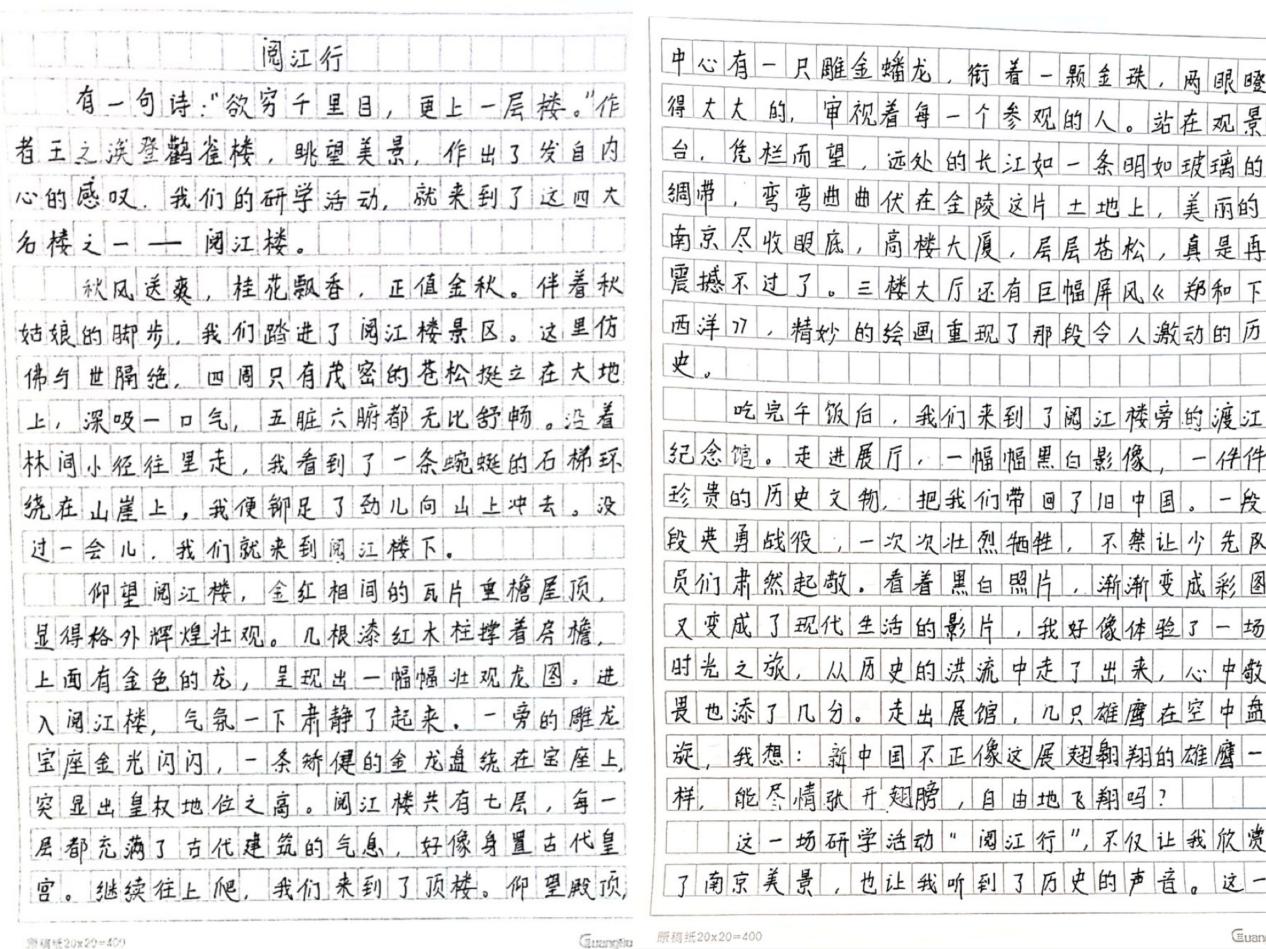 阅江行
有一句诗：“欲穷千里目，更上一层楼。”作
者王之涣登鹳雀楼，眺望美景，作出了发自内
心的感叹．我们的研学活动，就来到了这四大
名楼之一——阅江楼。
秋风送爽，桂花飘香，正值金秋。伴着秋
姑娘的脚步，我们踏进了阅江楼景区。这里仿
佛与世隔绝，四周只有茂密的苍松挺立在大地
上，深吸一口气，五脏六腑都无比舒畅。沿着
林间小径往里走，我看到了一条蜿蜒的石梯环
绕在山崖上，我便铆足了劲儿向山上冲去。没
过一会儿，我们就来到阅江楼下。
仰望阅江楼，金红相间的瓦片重檐屋顶，
显得格外辉煌壮观。几根漆红木柱撑着房檐，
上面有金色的龙，呈现出一幅幅壮观龙图。进
入阅江楼，气氛一下肃静了起来．一旁的雕龙
宝座金光闪闪，一条矫健的金龙盘绕在宝座上，
突显出皇权地位之高。阅江楼共有七层，每一
层都充满了古代建筑的气息，好像身置古代皇
宫。继续往上爬，我们来到了顶楼。仰望殿顶，
原稿纸20x20=400
中心有一只雕金蟠龙，衔着一颗金珠，两眼瞪
得大大的，审视着每一个参观的人。站在观景
台，凭栏而望，远处的长江如一条明如玻璃的
绸带，弯弯曲曲伏在金陵这片土地上，美丽的
南京尽收眼底，高楼大厦，层层苍松，真是再
震撼不过了。三楼大厅还有巨幅屏风《郑和下
西洋》，精妙的绘画重现了那段令人激动的历
史。
吃完午饭后，我们来到了阅江楼旁的渡江
纪念馆。走进展厅，一幅幅黑白影像，一件件
珍贵的历史文物，把我们带回了旧中国。一段
段英勇战役，一次次壮烈牺牲，不禁让少先队
员们肃然起敬。看着黑白照片，渐渐变成彩图
又变成了现代生活的影片，我好像体验了一场
时光之旅，从历史的洪流中走了出来，心中敬
畏也添了几分。走出展馆，几只雄鹰在空中盘
旋，我想：新中国不正像这展翅翱翔的雄鹰一
样，能尽情张开翅膀，自由地飞翔吗？
这一场研学活动“阅江行”，不仅让我欣赏
了南京美景，也让我听到了历史的声音。这一
原稿纸20x20=400